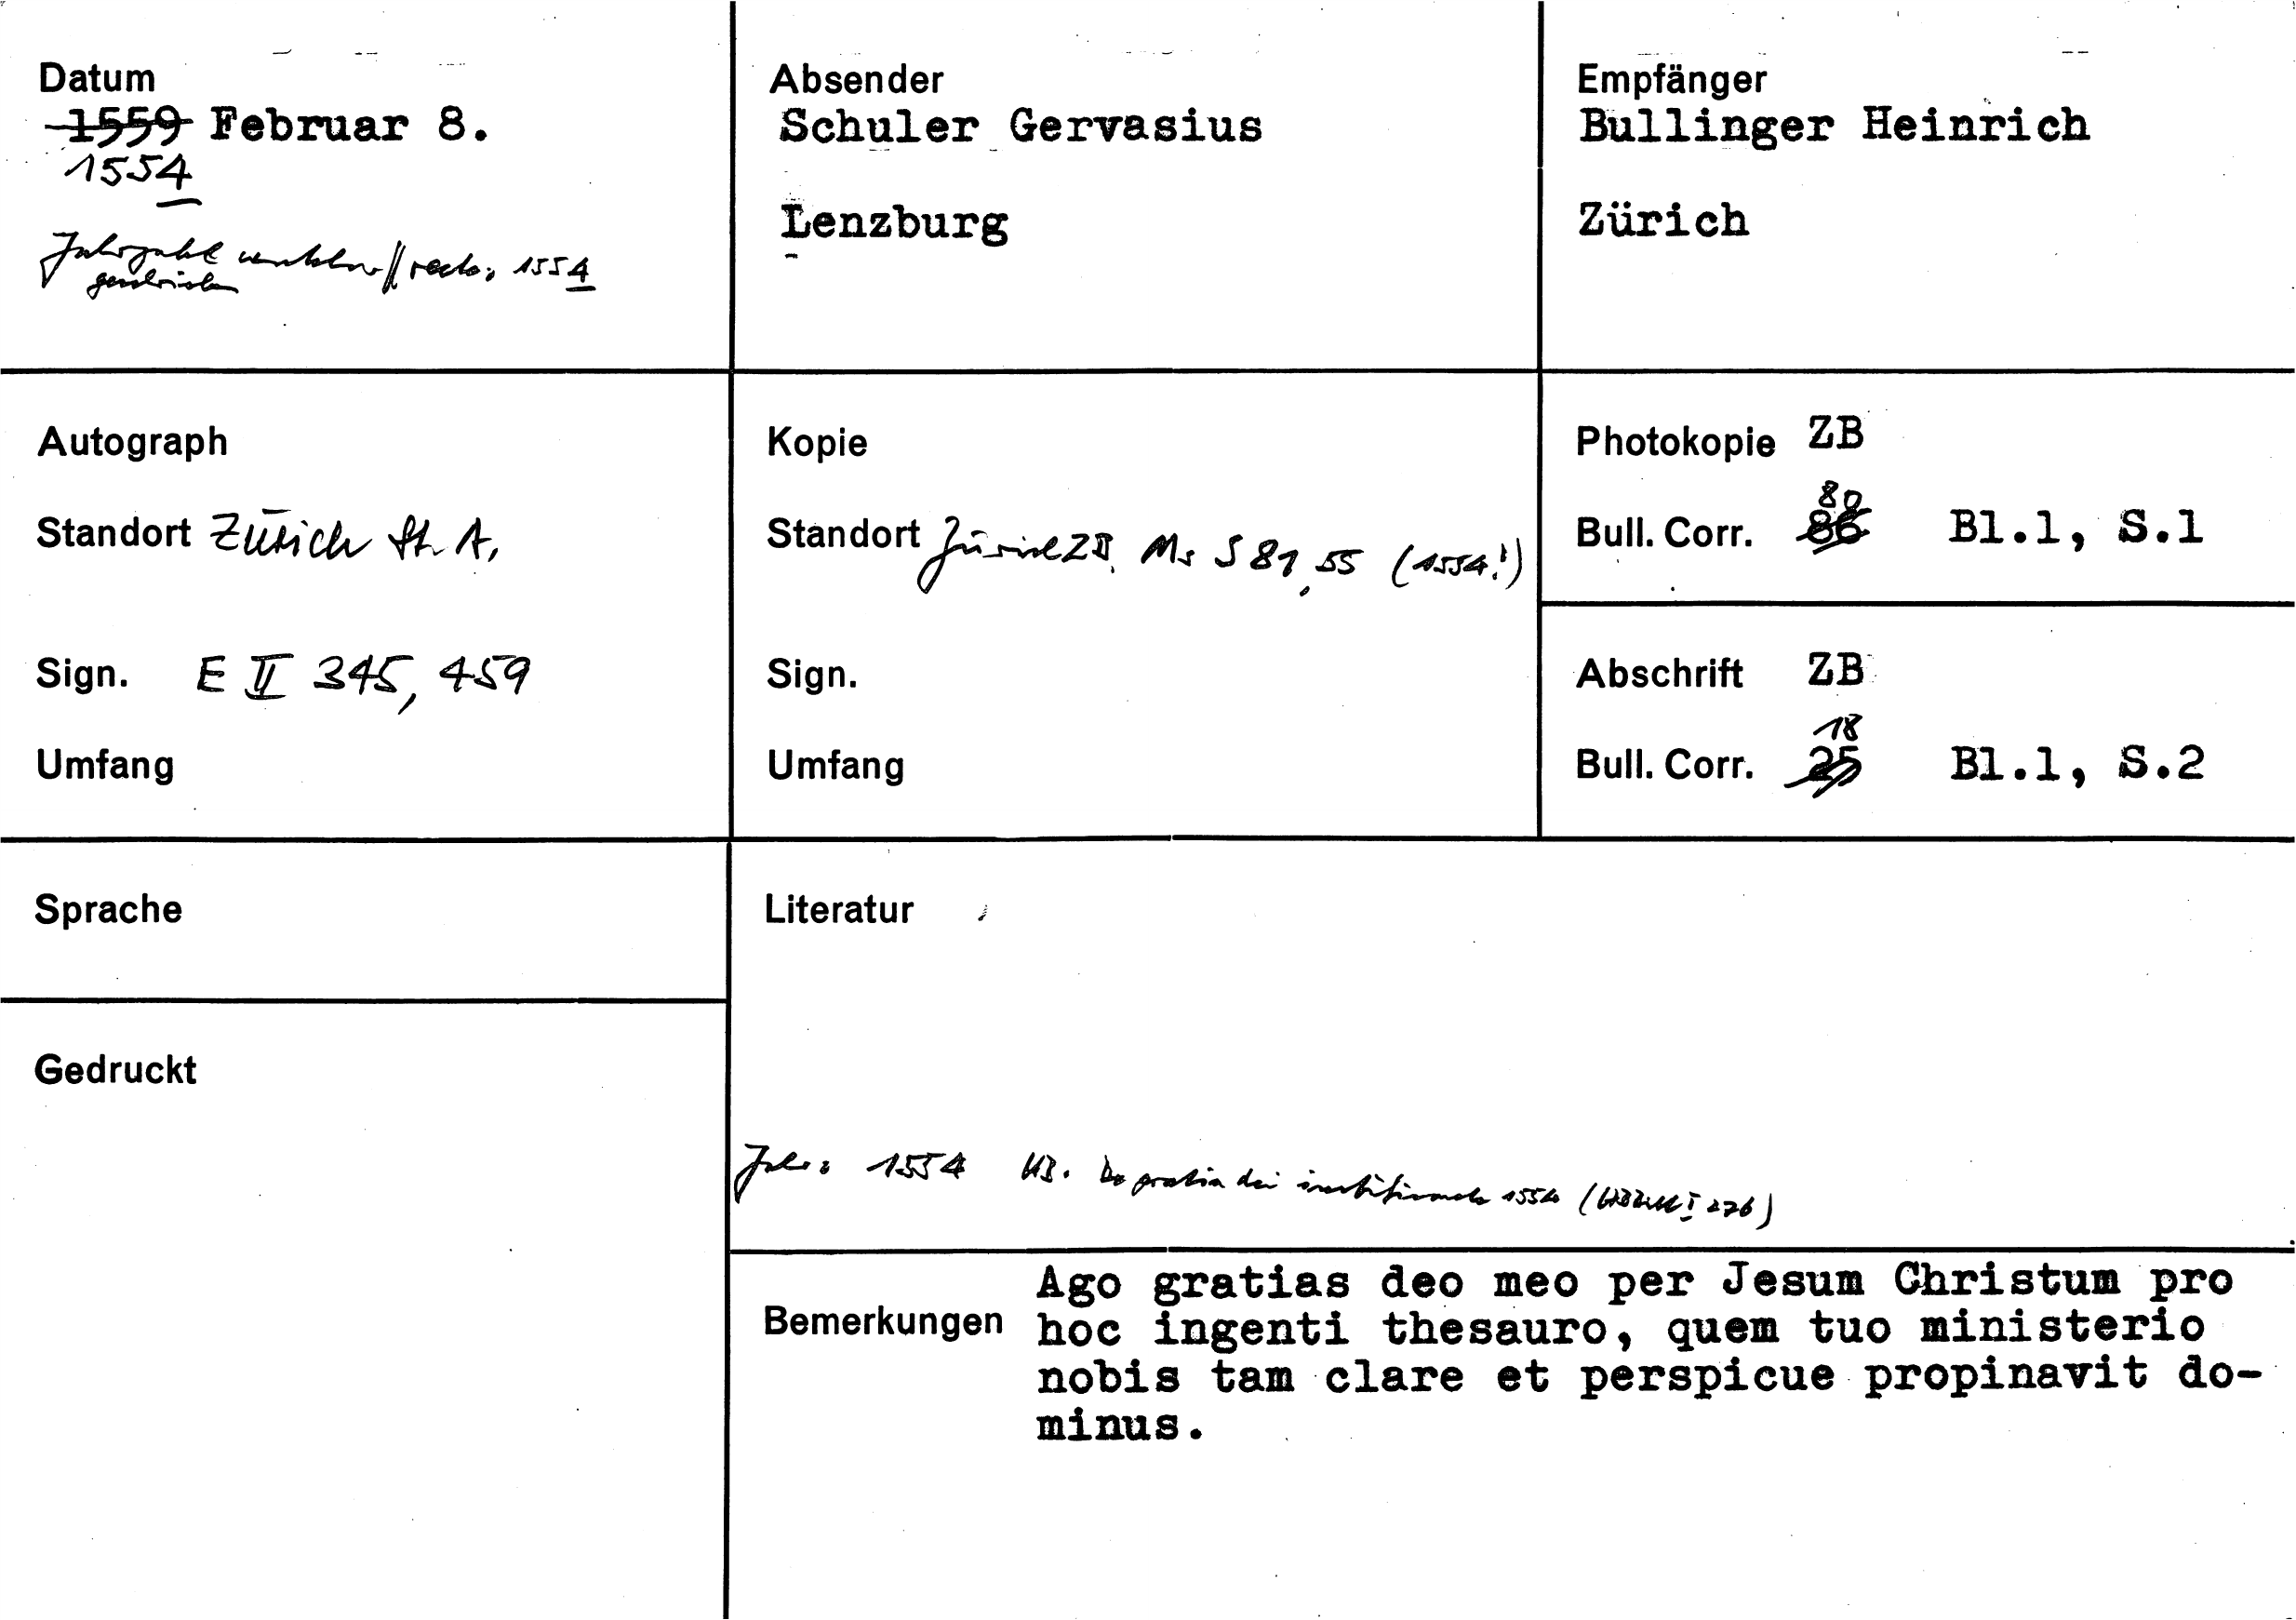 Datum
1559 Februar 8.
1554
Jahrzahl unklar // recte: 1554
geschrieben
Absender
Schuler Gervasius
Lenzburg
Empfänger
Bullinger Heinrich
Zürich
Autograph
Standort Zürich St. A.
Sign. E II 345, 459
Umfang
Kopie
Standort Zürich ZB, Ms S 81, 55 (1554!)
Sign.
Umfang
Photokopie ZB
80
Bull. Corr. 86 Bl.1, S.1
Abschrift ZB
18
Bull. Corr. 25 Bl.1, S.2
Sprache
Literatur
Gedruckt
1554 HB. De gratia dei iustificante 1554 (I 276)
Bemerkungen
Ago gratias deo meo per Jesum Christum pro
hoc ingenti thesauro, quem tuo ministerio
nobis tam clare et perspicue propinavit do-
minus.